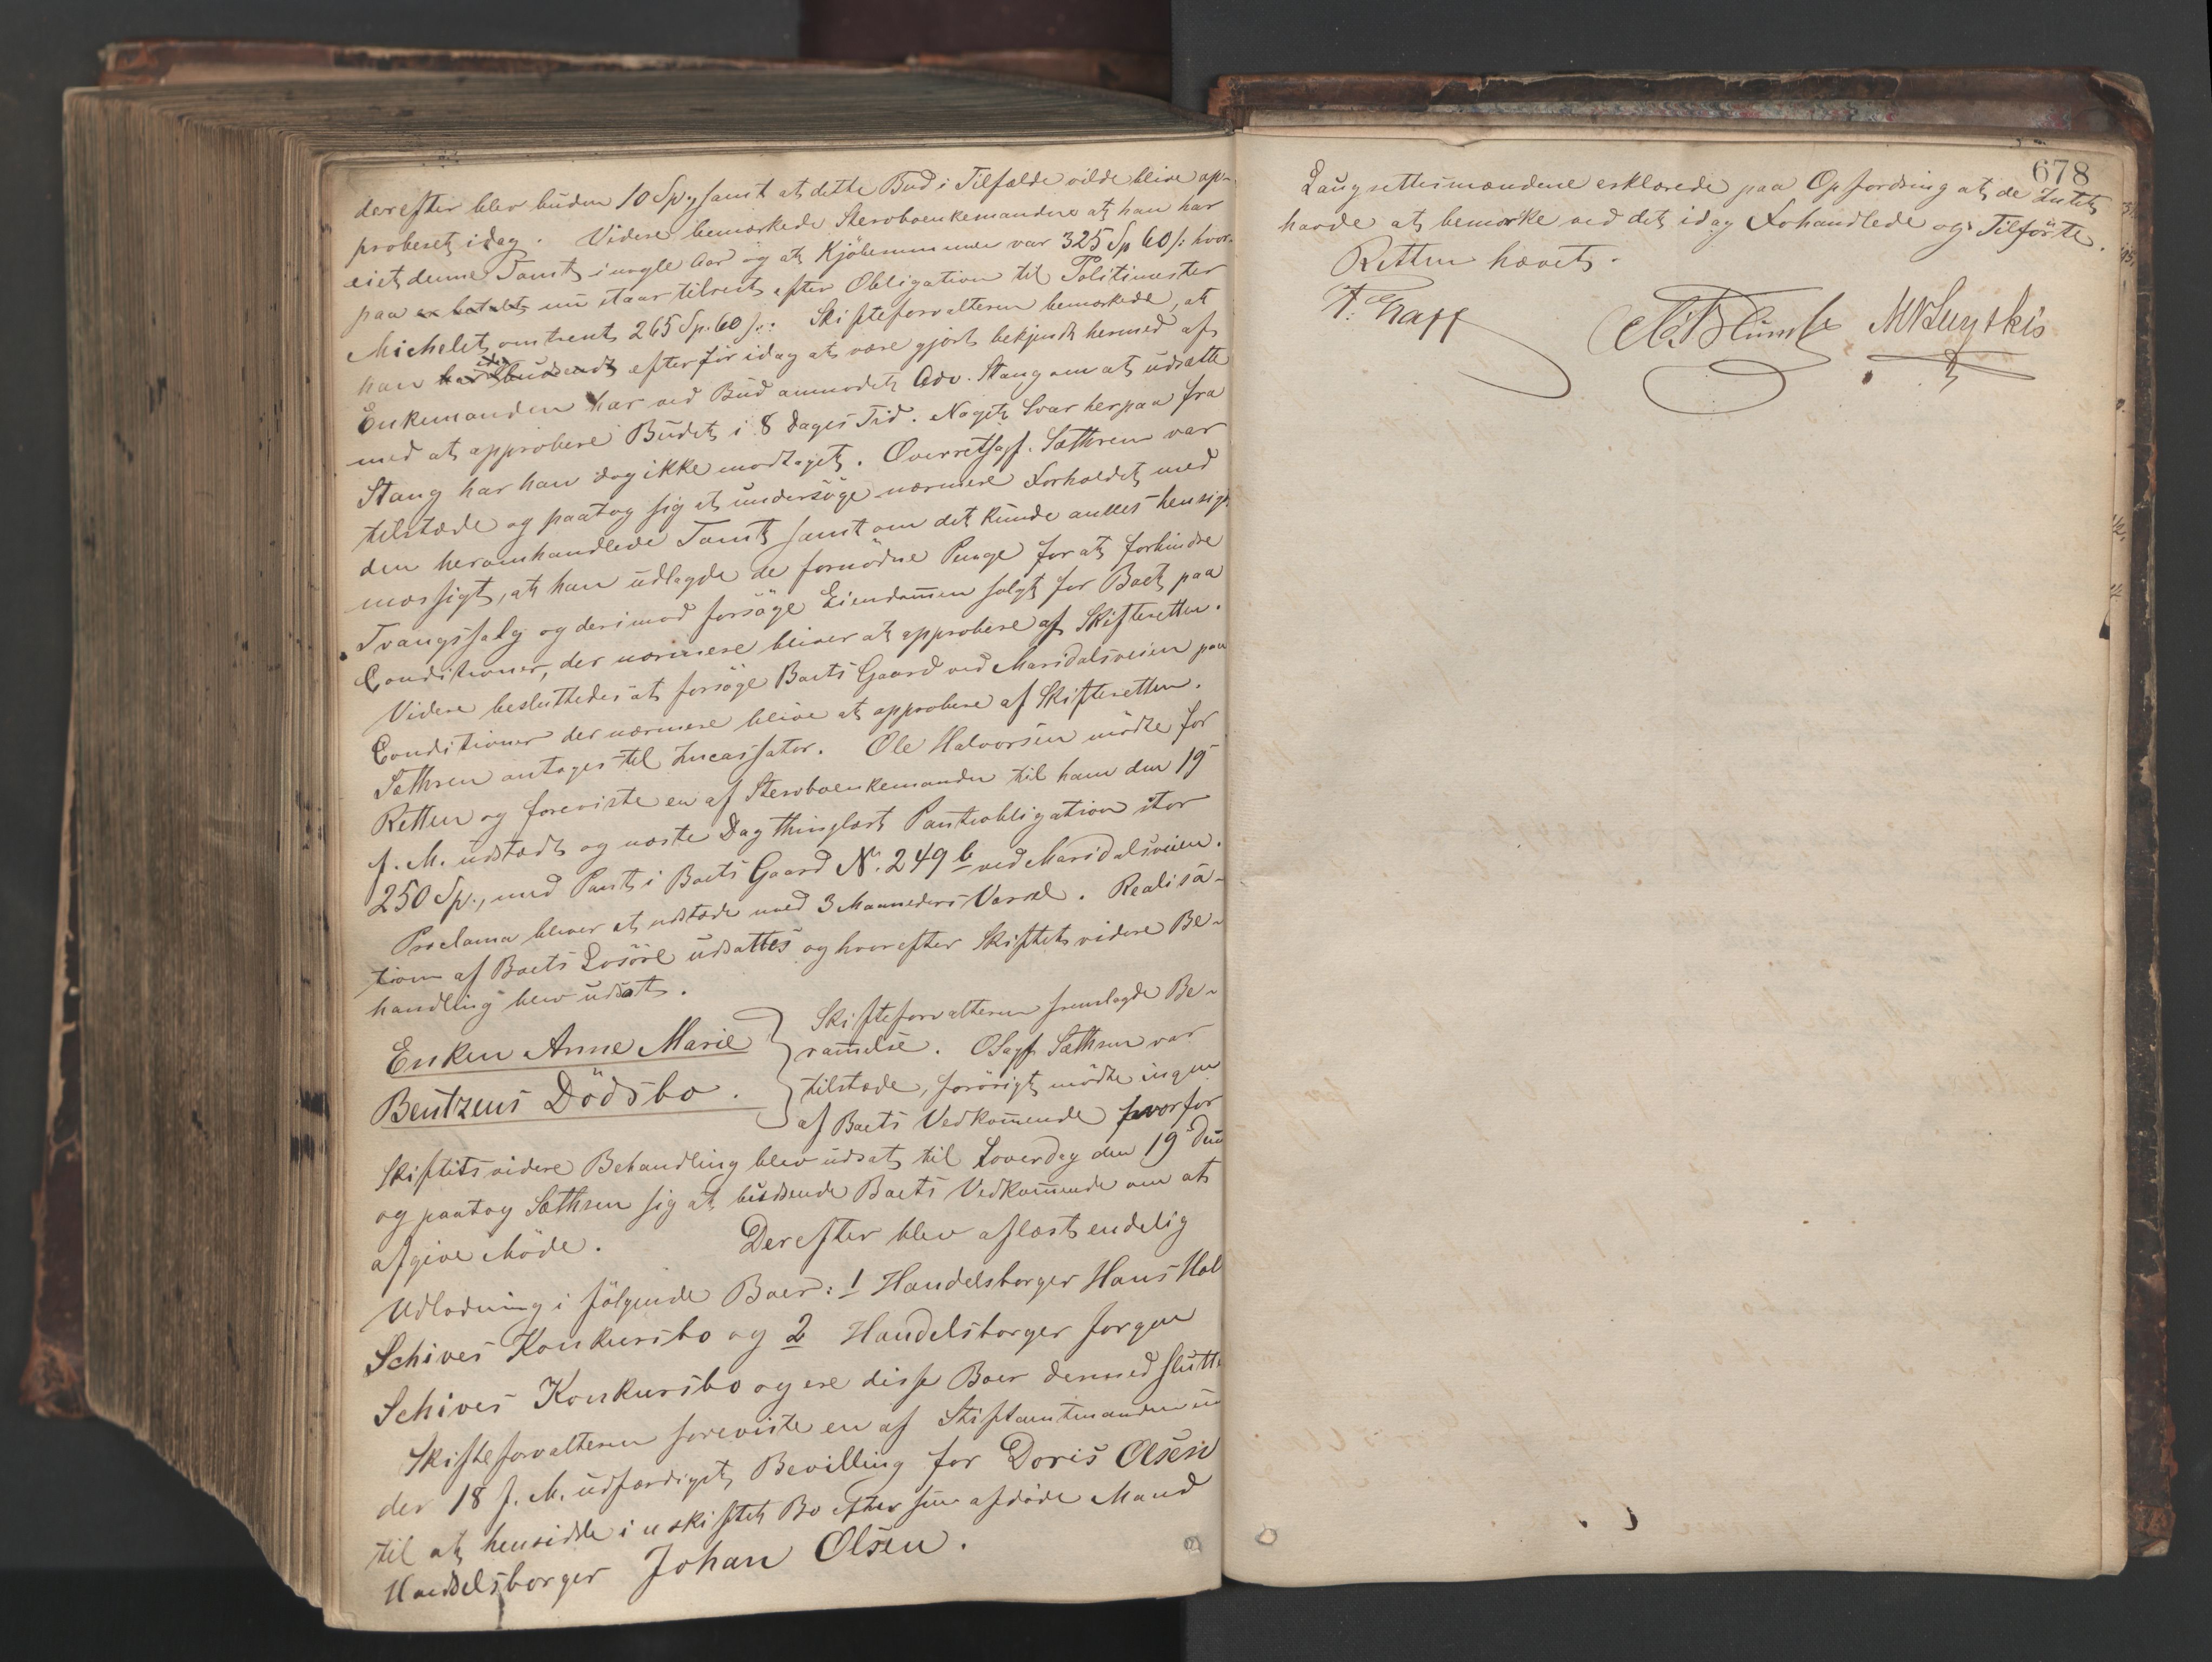 derefter blev buden 10 Sp., samt at dette Bud i Tilfælde vilde blive ap-
proberet idag. Videre bemærkede Stervboenkemanden at han har
eiet denne Tomt i nogle Aar og at Kjöbesummen var 325 Sp 60 s: hvor-
paa er betalt nu staar tilrest efter Obligation til Politimester
Michelet omtrent 265 Sp. 60 s:. Skifteforvalteren bemærkede, at
han efter för idag at være gjort bekjendt hermed af
Enkemanden har ved Bud anmodet Adv. Stang om at udsætte
med at approbere Budet i 8 Dages Tid. Noget Svar herpaa fra
Stang har han dog ikke modtaget. Overretssagf. Sæthren var
tilstede og paatog sig at undersöge nærmere Forholdet med
den heromhandlede Tomt samt om det kunde ansees hensigts-
mæssigt, at han udlagde de fornödne Penge for at forhindre
Tvangssalg og derimod forsöge Eiendommen solgt for Boet paa
Conditioner, der nærmere bliver at approbere af Skifteretten.
Videre besluttedes at forsöge Boets Gaard ved Maridalsveien paa
Conditioner der nærmere blive at approbere af Skifteretten.
Sæthren antoges til Incassator. Ole Halvorsen mödte for
Retten og foreviste en af Stervboenkemanden til ham den 19
f. M. udstædt og næste Dag thinglæst Pantobligation stor
250 Sp., med Pant i Boets Gaard N. 249 b ved Maridalsveien.
Proclama bliver at udstæde med 3 Maaneders Varsel. Realisa-
tion af Boets Lösöre udsattes og hvorefter Skiftets videre Be-
handling blev udsat.
Enken Anne Marie
Bentzens Dödsbo.
Skifteforvalteren fremlagde Be-
rammelse. OSagf. Sæthren var
tilstede, forövrigt mödte ingen
af Boets Vedkommende hvorfor
Skiftets videre Behandling blev udsat til Loverdag den 19 ds
og paatog Sæthren sig at budsende Boets Vedkommende om at
afgive Möde. Derefter blev aflæst endelig
Udlodning i fölgende Boer: 1 Handelsborger Hans Hal
Schives Konkursbo og 2 Handelsborger Jörgen
Schives Konkursbo og ere disse Boer dermed slutte
Skifteforvalteren foreviste en af Stiftamtmanden un
der 18 f. M. udfærdiget Bevilling for Doris Olsen
til at hensidde i uskiftet Bo efter sin afdöde Mand
Handelsborger Johan Olsen.
678
Laugrettesmændene erklærede paa Opfordring at de Intet
havde at bemærke ved det idag Forhandlede og Tilförte.
Retten hævet.